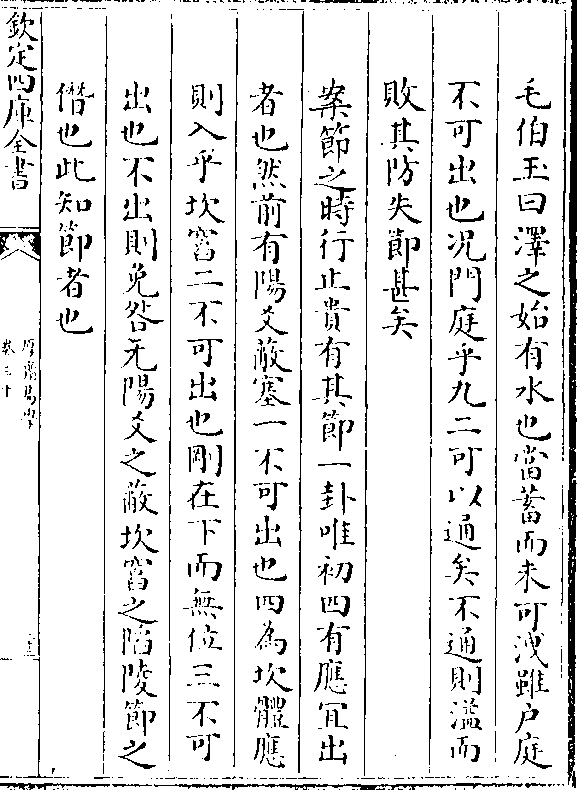 毛伯玉曰澤之始有水也當蓄而未可洩雖戶庭
不可出也况門庭乎九二可以通矣不通則濫而
敗其防失節甚矣
案節之時行止貴有其節一卦唯初四有應宜出
者也然前有陽爻蔽塞一不可出也四為坎體應
則入乎坎窞二不可出也剛在下而無位三不可
出也不出則免咎无陽爻之蔽坎窞之陷陵節之
僭也此知節者也
欽定四庫全書
厚齋易學
卷三十